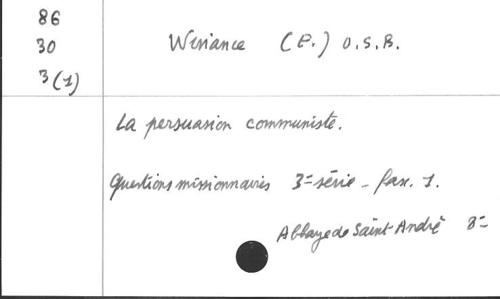 86
30
3(1)
Weriance (P.) O.S.B.
La persuasion communiste.
Questions missionnaires 3= série - fasc. 1.
Abbaye de Saint-André 8=